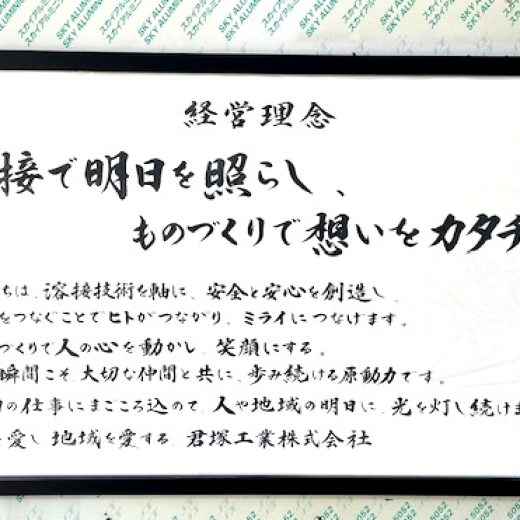 スカイアルミニ
SKY ALUMINI
経営理念
接で明日を照らし、
ものづくりで想いをカタチ
ちは、溶接技術を軸に、安全と安心を創造し、
をつなぐことでヒトがつながり、ミライにつなげます。
づくりで人の心を動かし、笑顔にする。
瞬間こそ、大切な仲間と共に、歩み続ける原動力です。
の仕事にまごころ込めて、人や地域の明日に、光を灯し続けま
を愛し 地域を愛する 君塚工業株式会社
5052